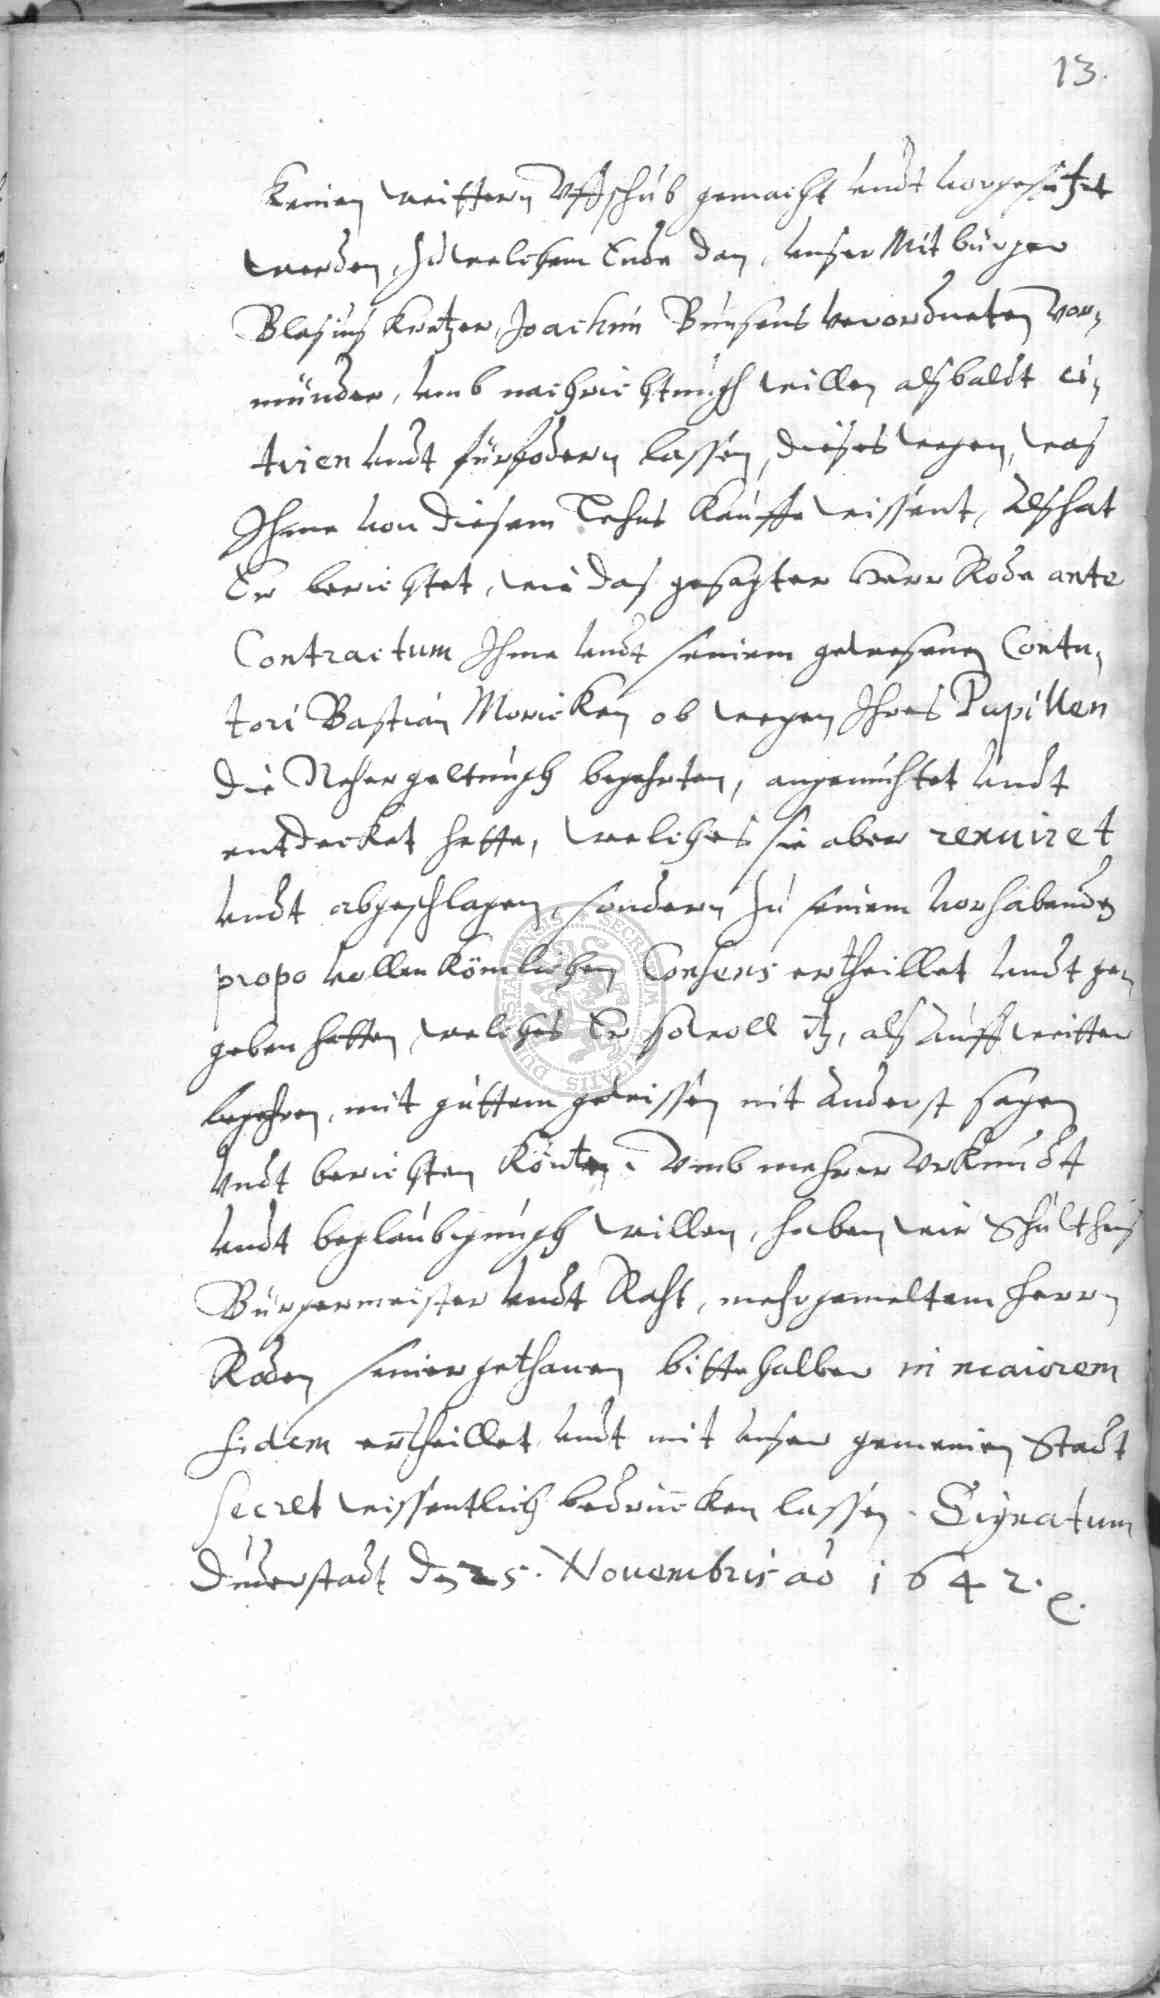 13.
keinen weittern Uffschub gemacht undt vorgesützet
werden, Zu welchem Ende dan, unser Mitbürger
Blasius Kretzer, Joachim Bünsens verordneten Vor„
münder, umb nachrichtungh willen alsbaldt ci„
tiren undt fürfodern lassen, dieses wegen, was
Ihme von diesem Lehns Kauffe wissent, Alß hat
Er berichtet, wie das gesagter Herr Rode ante
Contractum Ihme undt seinem gewesenen Contu„
tori Bastian Moricken ob wegen Ihres Pupillen
die Nehergeltungh begehrten, angemuhtet undt
entdecket hette, welches sie aber renuiret
undt abgeschlagen, sondern zu seinem vorhabenden
propo vollenkömlichen Consens ertheillet undt ge„
geben hetten, welches Er sowoll itz, als auff weitter
begehren, mit guttem gewissen nit anderst sagen
undt berichten könten. Umb mehrer Urkundt
undt beglaubigungh willen, haben wir Schultheis
Bürgermeister undt Raht, mehrgemeltem Herrn
Roden seiner gethanen bitte halber in maiorem
fidem ertheillet undt mit unser gemeinen Stadt
Secret wissentlich bedrucken lassen. Signatum
Duderstadt den 25. Novembris ao 1642.
SECRETUM
DUDERSTADIENSIS